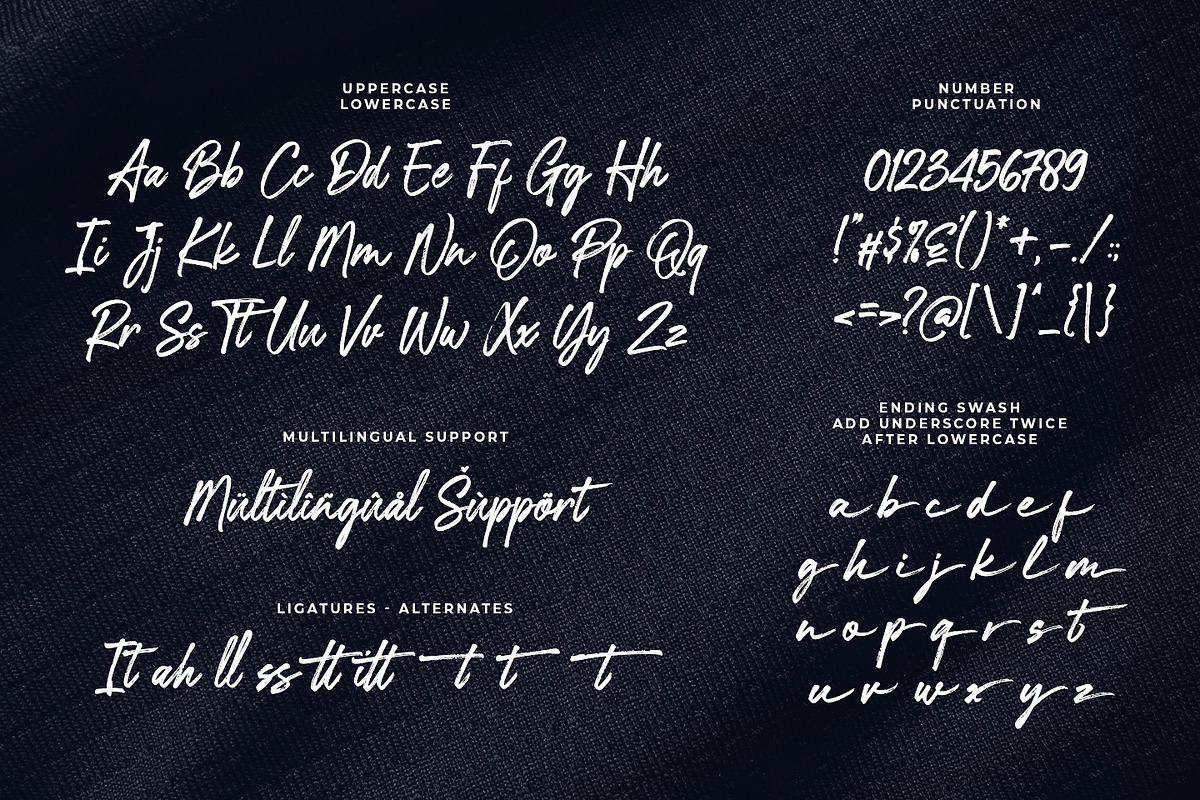 UPPERCASE
LOWERCASE
Aa Bb Cc Dd Ee Ff Gg Hh
Ii Jj Kk Ll Mm Nn Oo Pp Qq
Rr Ss Tt Uu Vv Ww Xx Yy Zz
NUMBER
PUNCTUATION
0123456789
!"#$%&'()*+,-./:;
<=>?@[\]^_{|}
MULTILINGUAL SUPPORT
Mültìlîñgûål Šùppõrt
LIGATURES - ALTERNATES
It ah ll ss tt itt t t t
ENDING SWASH
ADD UNDERSCORE TWICE
AFTER LOWERCASE
a b c d e f
g h i j k l m
n o p q r s t
u v w x y z